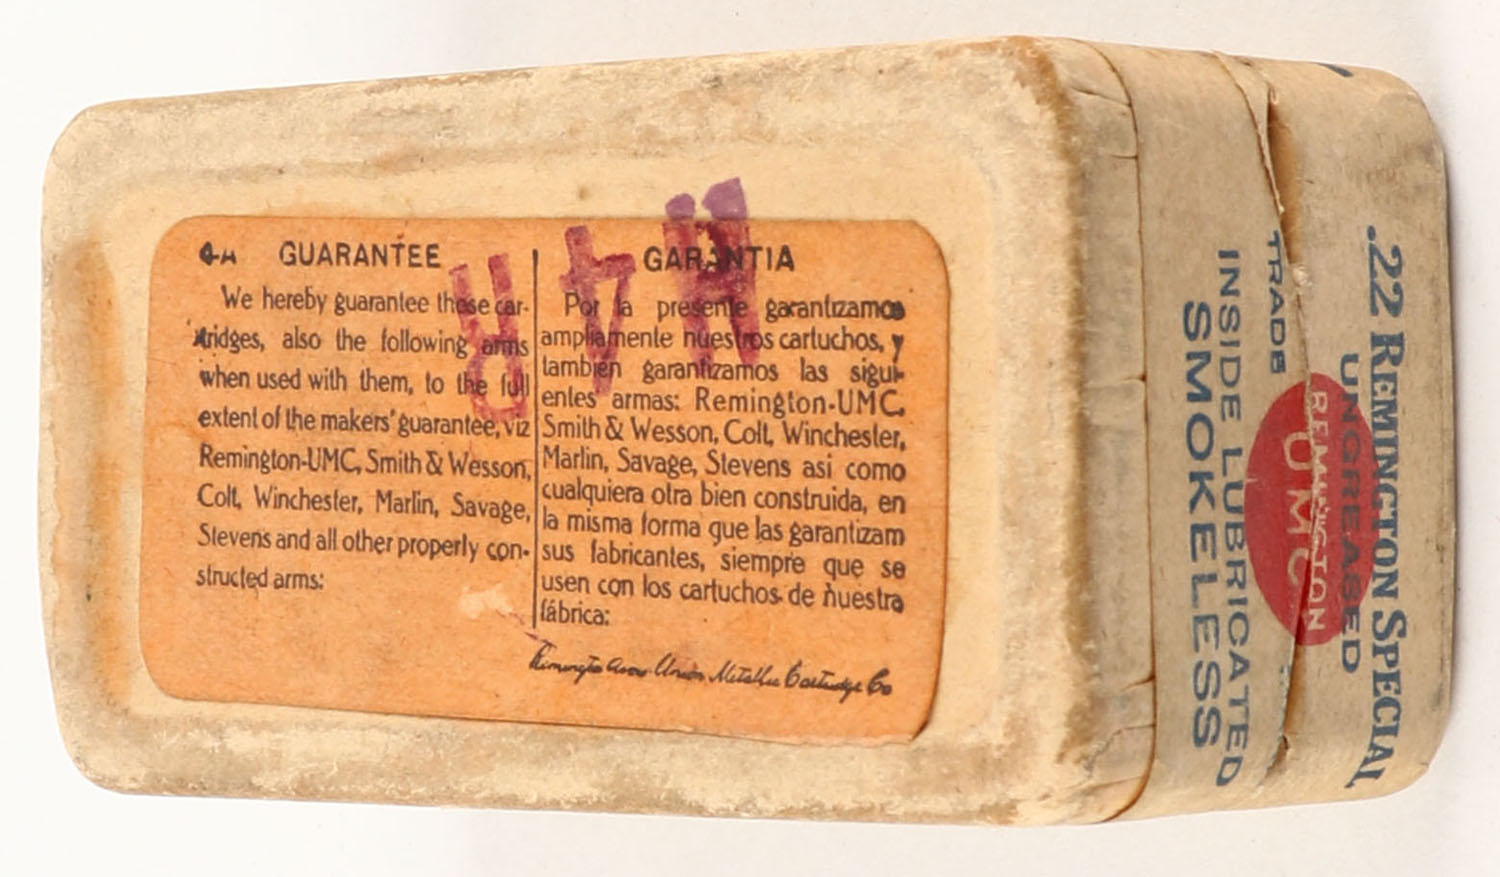 4-A GUARANTEE
We hereby guarantee these car-
tridges, also the following arms
when used with them, to the full
extent of the makers' guarantee, viz
Remington-UMC, Smith & Wesson,
Colt, Winchester, Marlin, Savage,
Stevens and all other properly con-
structed arms:
GARANTIA
Por la presente garantizamos
ampliamente nuestros cartuchos, y
tambien garantizamos las sigui-
entes armas: Remington-UMC,
Smith & Wesson, Colt, Winchester,
Marlin, Savage, Stevens asi como
cualquiera otra bien construida, en
la misma forma que las garantizam
sus fabricantes, siempre que se
usen con los cartuchos de nuestra
fábrica:
Remington Arms Union Metallic Cartridge Co
H 4 R
.22 REMINGTON SPECIAL
UNGREASED
REMINGTON
UMC
TRADE
INSIDE LUBRICATED
SMOKELESS